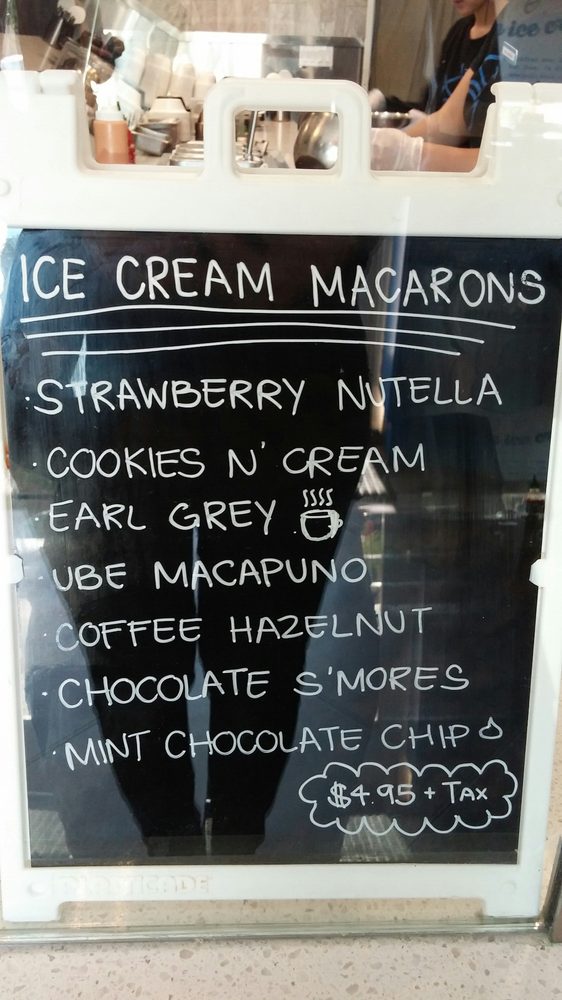 ICE CREAM MACARONS
·STRAWBERRY NUTELLA
·COOKIES N' CREAM
·EARL GREY
·UBE MACAPUNO
·COFFEE HAZELNUT
·CHOCOLATE S'MORES
·MINT CHOCOLATE CHIP
$4.95 + TAX
PLASTICADE